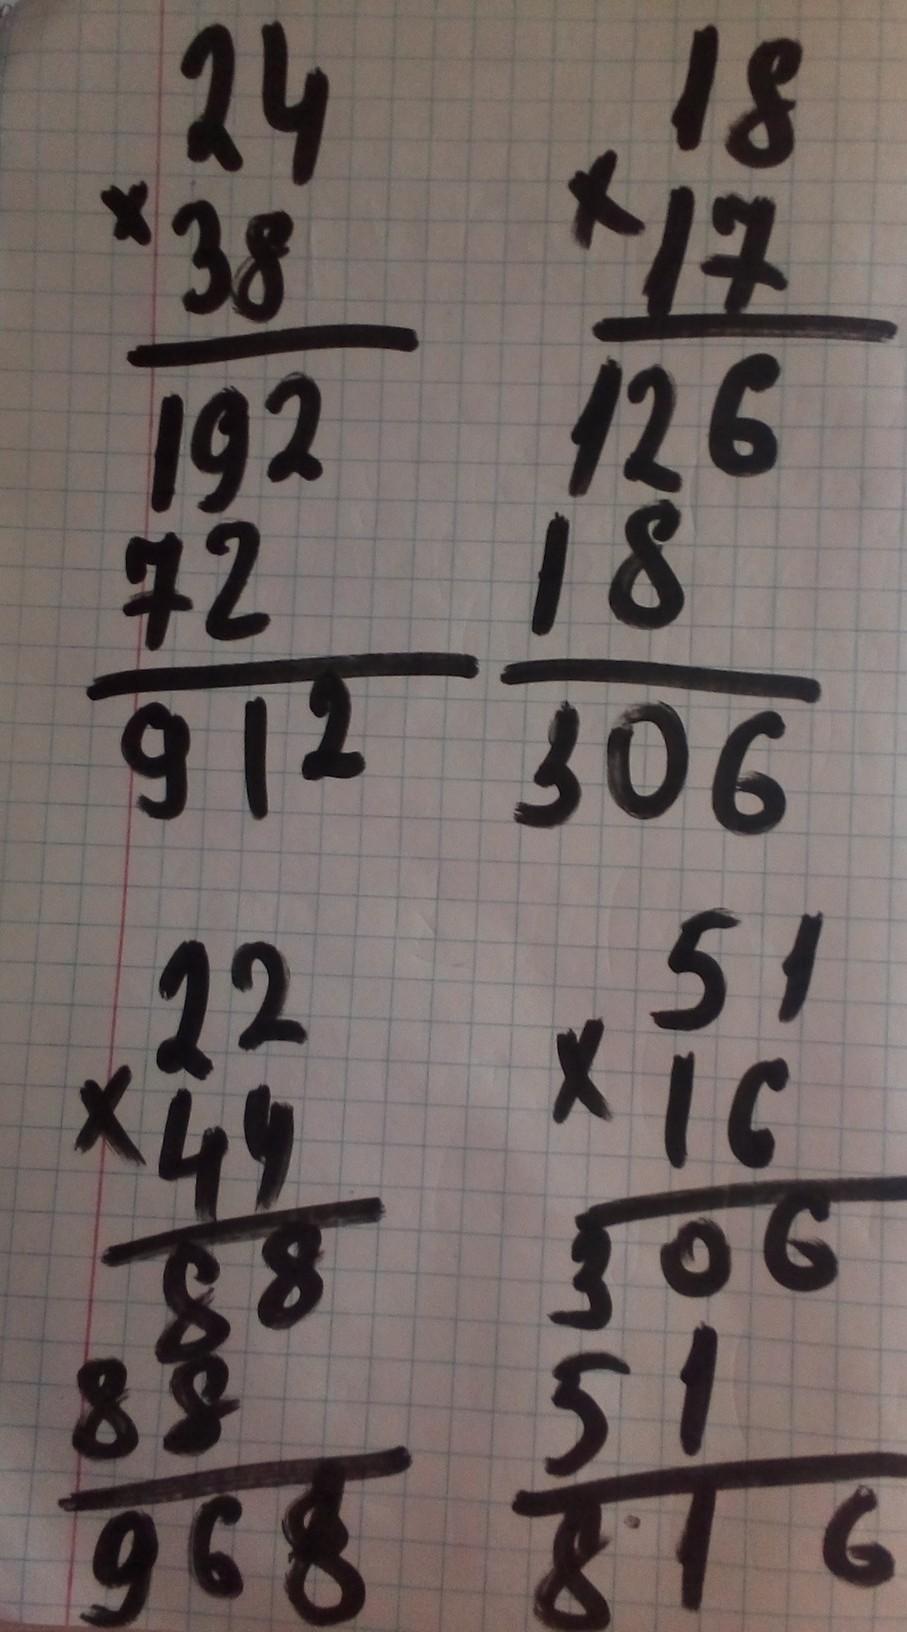 24
×38
192
72
912
18
×17
126
18
306
22
×44
88
88
968
51
×16
306
51
816